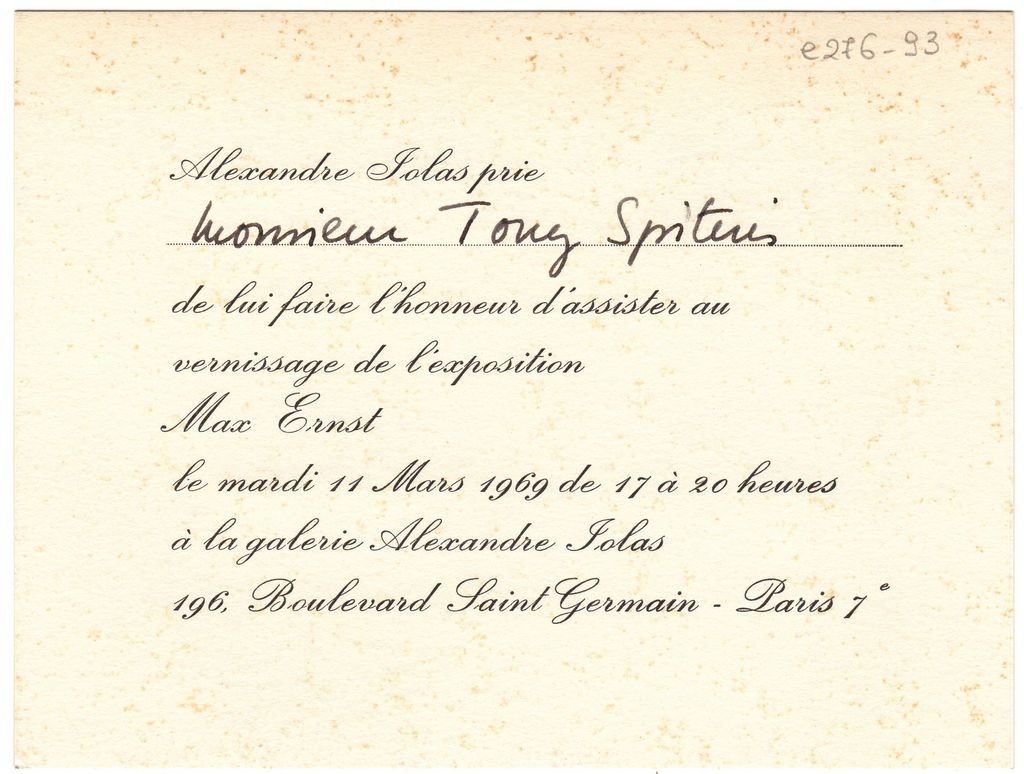 e276-93
Alexandre Iolas prie
Monsieur Tony Spiteris
de lui faire l'honneur d'assister au
vernissage de l'exposition
Max Ernst
le mardi 11 Mars 1969 de 17 à 20 heures
à la galerie Alexandre Iolas
196, Boulevard Saint Germain - Paris 7e